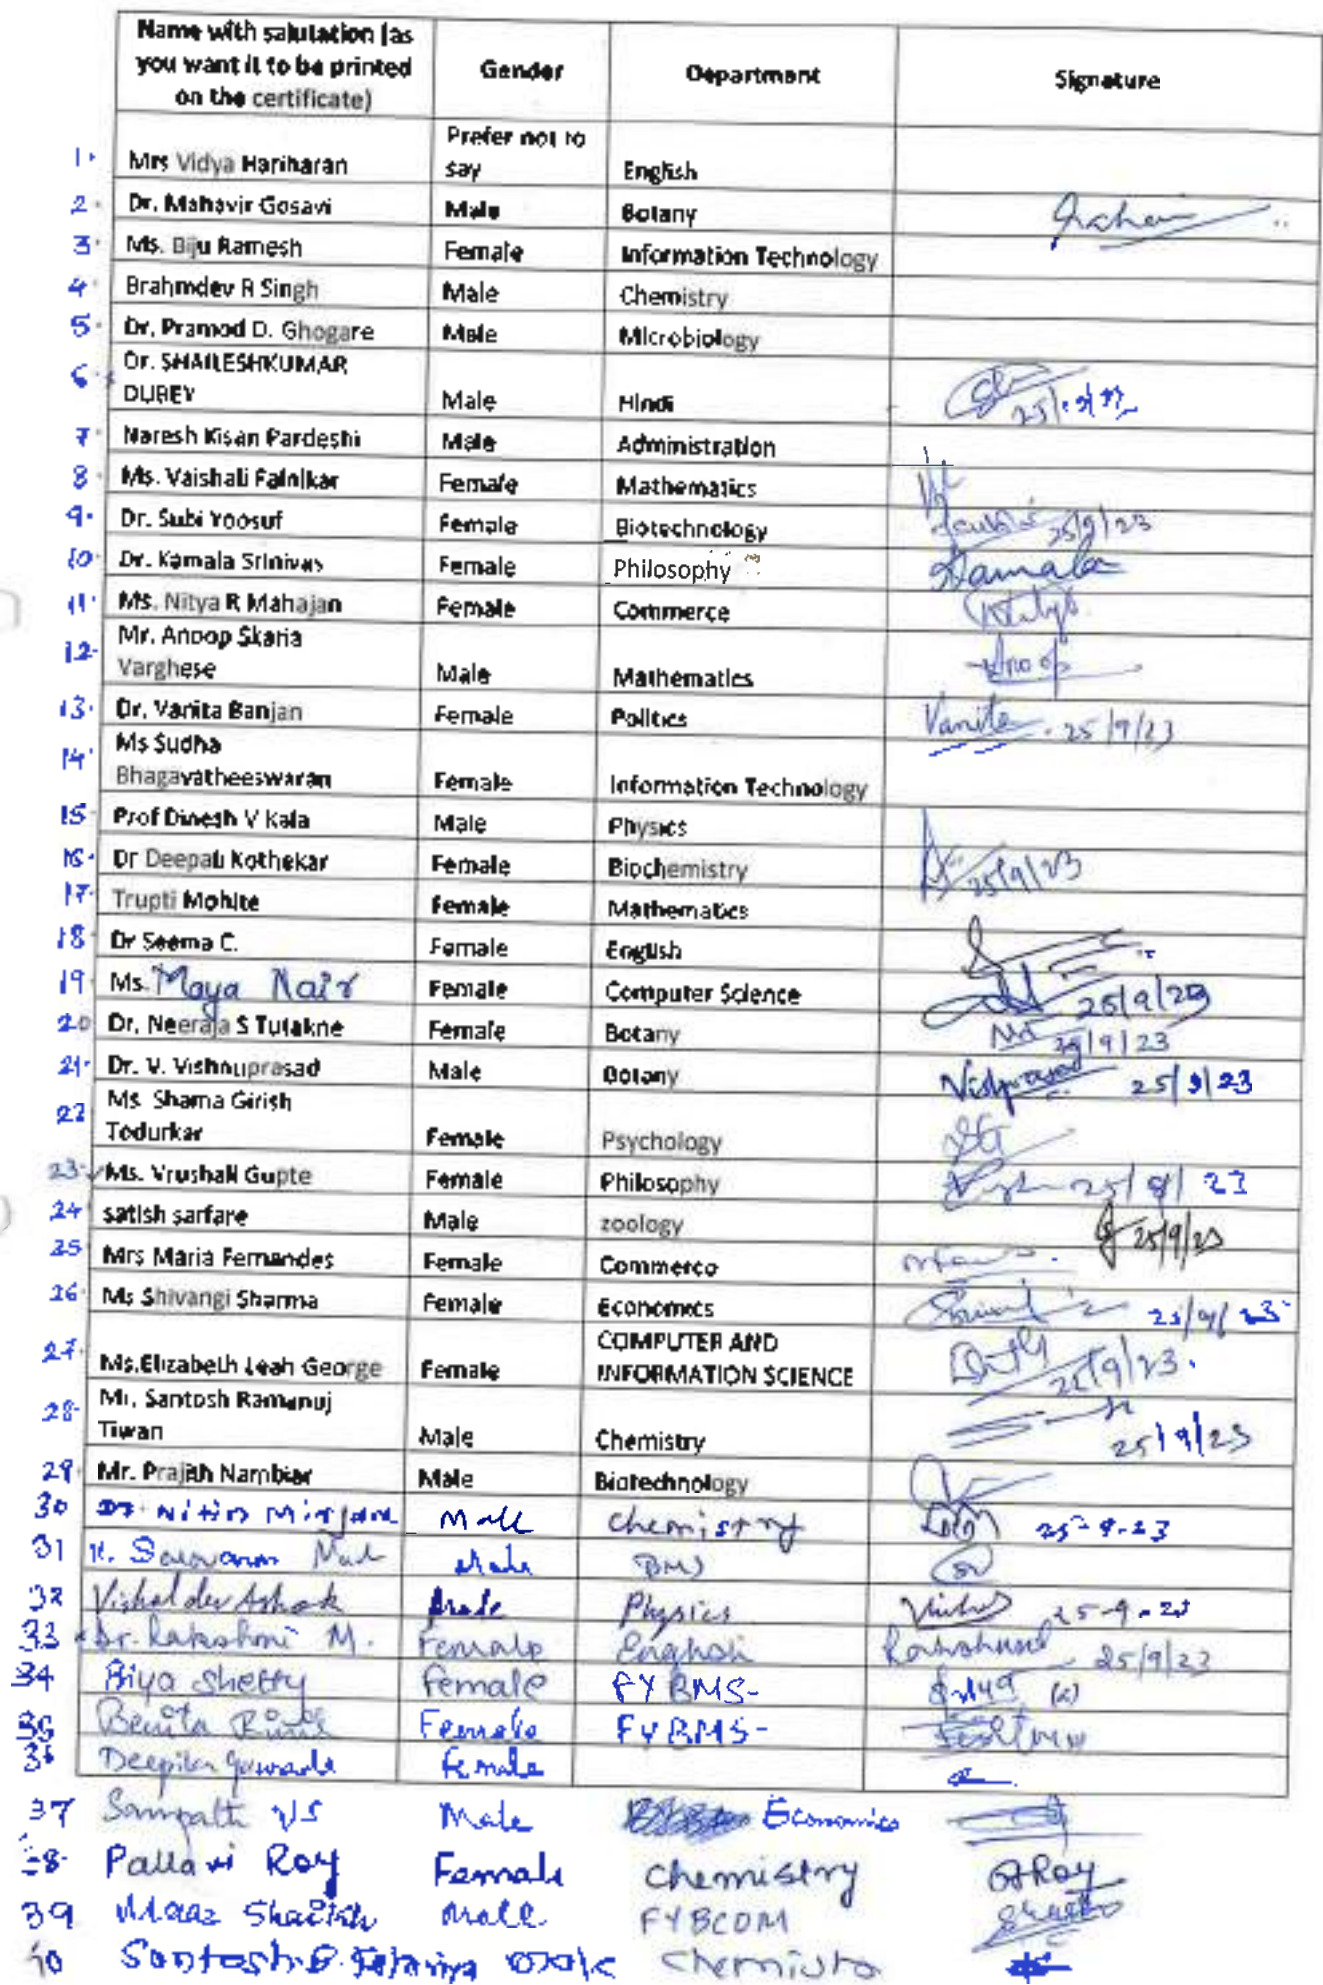 Name with salutation (as you want it to be printed on the certificate) Gender Department Signature
1. Mrs Vidya Hariharan Prefer not to say English
2. Dr. Mahavir Gosavi Male Botany
3. Ms. Biju Ramesh Female Information Technology
4. Brahmdev R Singh Male Chemistry
5. Dr. Pramod D. Ghogare Male Microbiology
6. Dr. SHAILESHKUMAR DUBEY Male Hindi
7. Naresh Kisan Pardeshi Male Administration
8. Ms. Vaishali Fatnikar Female Mathematics
9. Dr. Subi Yoosuf Female Biotechnology 25/9/23
10. Dr. Kamala Srinivas Female Philosophy Kamala
11. Ms. Nitya R Mahajan Female Commerce Nitya
12. Mr. Anoop Skaria Varghese Male Mathematics Anoop
13. Dr. Vanita Banjan Female Politics Vanita 25/9/23
14. Ms Sudha Bhagavatheeswaran Female Information Technology
15. Prof Dinesh V Kala Male Physics
16. Dr Deepali Kothekar Female Biochemistry 25/9/23
17. Trupti Mohite Female Mathematics
18. Dr Seema C. Female English
19 Ms. Maya Nair Female Computer Science 25/9/23
20 Dr. Neeraja S Tutakne Female Botany 25/9/23
21. Dr. V. Vishnuprasad Male Botany 25/9/23
22 Ms. Shama Girish Todurkar Female Psychology
23. Ms. Vrushali Gupte Female Philosophy 25/9/23
24 satish sarfare Male zoology 25/9/23
25 Mrs Maria Fernandes Female Commerce
26. Ms Shivangi Sharma Female Economics 25/9/23
27. Ms.Elizabeth Leah George Female COMPUTER AND INFORMATION SCIENCE 25/9/23.
28. Mr. Santosh Ramanuj Tiwari Male Chemistry 25/9/23
29. Mr. Prajith Nambiar Male Biotechnology
30 Dr. Nitin Mirjane Male Chemistry 25-9-23
31 Male BMS
32 Vishal dev Ashok Male Physics 25-9-23
33 Dr. Rakashmi M. Female English 25/9/23
34 Riya Shetty Female FYBMS-
35 Benita Female FYBMS-
36 Deepika Female
37 Sampath VS Male Economics
38. Pallavi Roy Female Chemistry PRoy
39 Maaz Shaikh Male FYBCOM Shaikh
40 Santosh Male